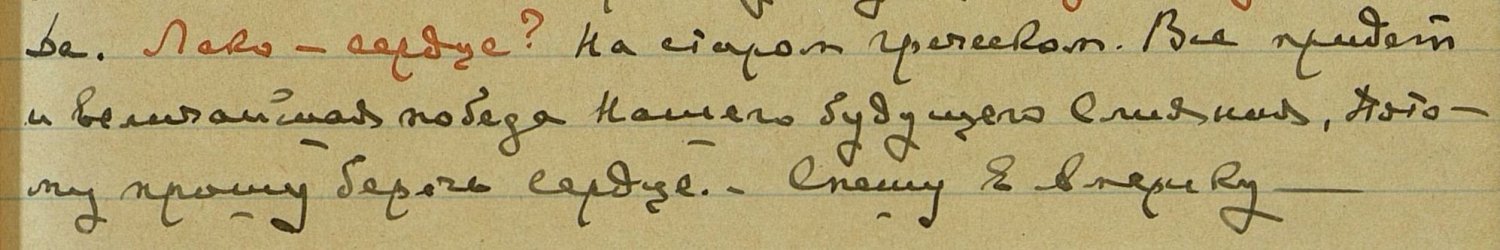 ва. Лако – сердце? На старом греческом. Все придет
и величайшая победа Нашего будущего Слияния, Пото-
му прошу беречь сердце. – Спешу Е